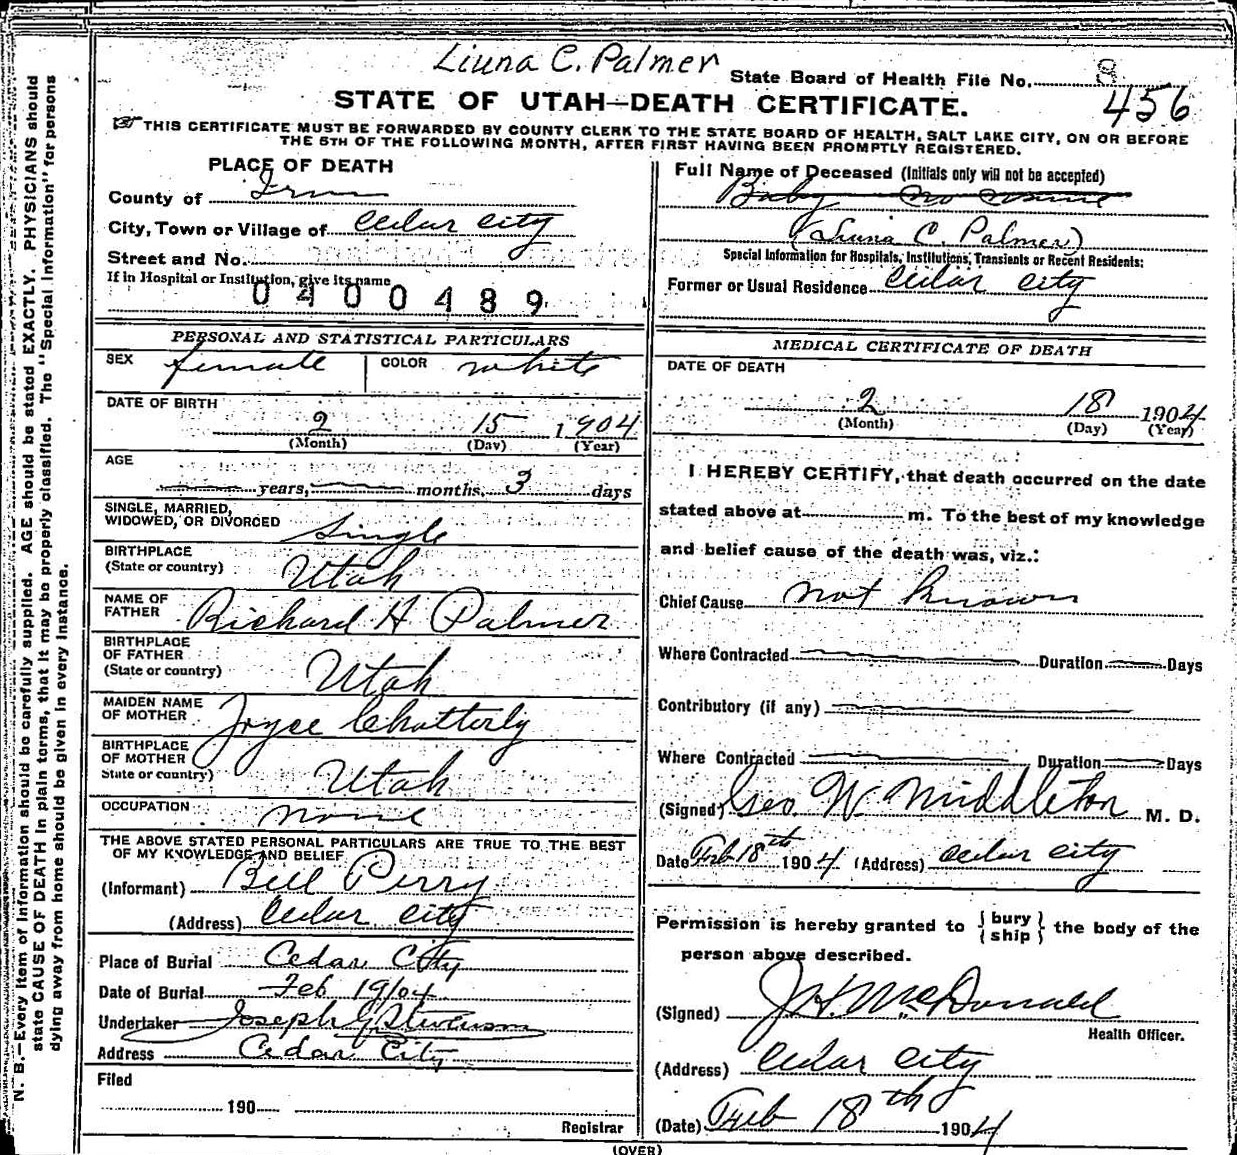 Liuna C. Palmer
State Board of Health File No. 8
456
STATE OF UTAH—DEATH CERTIFICATE.
THIS CERTIFICATE MUST BE FORWARDED BY COUNTY CLERK TO THE STATE BOARD OF HEALTH, SALT LAKE CITY, ON OR BEFORE
THE 5TH OF THE FOLLOWING MONTH, AFTER FIRST HAVING BEEN PROMPTLY REGISTERED.
PLACE OF DEATH
County of Iron
City, Town or Village of Cedar City
Street and No.
If in Hospital or Institution, give its name
0400489
Full Name of Deceased (Initials only will not be accepted)
Baby no name
(Liuna C. Palmer)
Special Information for Hospitals, Institutions, Transients or Recent Residents:
Former or Usual Residence Cedar City
PERSONAL AND STATISTICAL PARTICULARS
SEX female COLOR white
DATE OF BIRTH
2 15 1904
(Month) (Day) (Year)
AGE
years, months, 3 days
SINGLE, MARRIED,
WIDOWED, OR DIVORCED Single
BIRTHPLACE
(State or country) Utah
NAME OF
FATHER Richard H Palmer
BIRTHPLACE
OF FATHER
(State or country) Utah
MAIDEN NAME
OF MOTHER Joyce Chatterly
BIRTHPLACE
OF MOTHER
State or country) Utah
OCCUPATION none
THE ABOVE STATED PERSONAL PARTICULARS ARE TRUE TO THE BEST
OF MY KNOWLEDGE AND BELIEF
(Informant) Bell Perry
(Address) Cedar City
Place of Burial Cedar City
Date of Burial Feb 19/04
Undertaker Joseph
Address Cedar City
Filed
190
Registrar
MEDICAL CERTIFICATE OF DEATH
DATE OF DEATH
2 18 1904
(Month) (Day) (Year)
I HEREBY CERTIFY, that death occurred on the date
stated above at m. To the best of my knowledge
and belief cause of the death was, viz.:
Chief Cause not known
Where Contracted Duration Days
Contributory (if any)
Where Contracted Duration Days
(Signed) Geo. W Middleton M. D.
Date Feb 18th 1904 (Address) Cedar City
Permission is hereby granted to { bury } the body of the
{ ship }
person above described.
(Signed) J H. McDonald
Health Officer.
(Address) Cedar City
(Date) Feb 18th 1904
(OVER)
N. B.—Every item of information should be carefully supplied. AGE should be stated EXACTLY. PHYSICIANS should
state CAUSE OF DEATH in plain terms, that it may be properly classified. The "Special Information" for persons
dying away from home should be given in every instance.